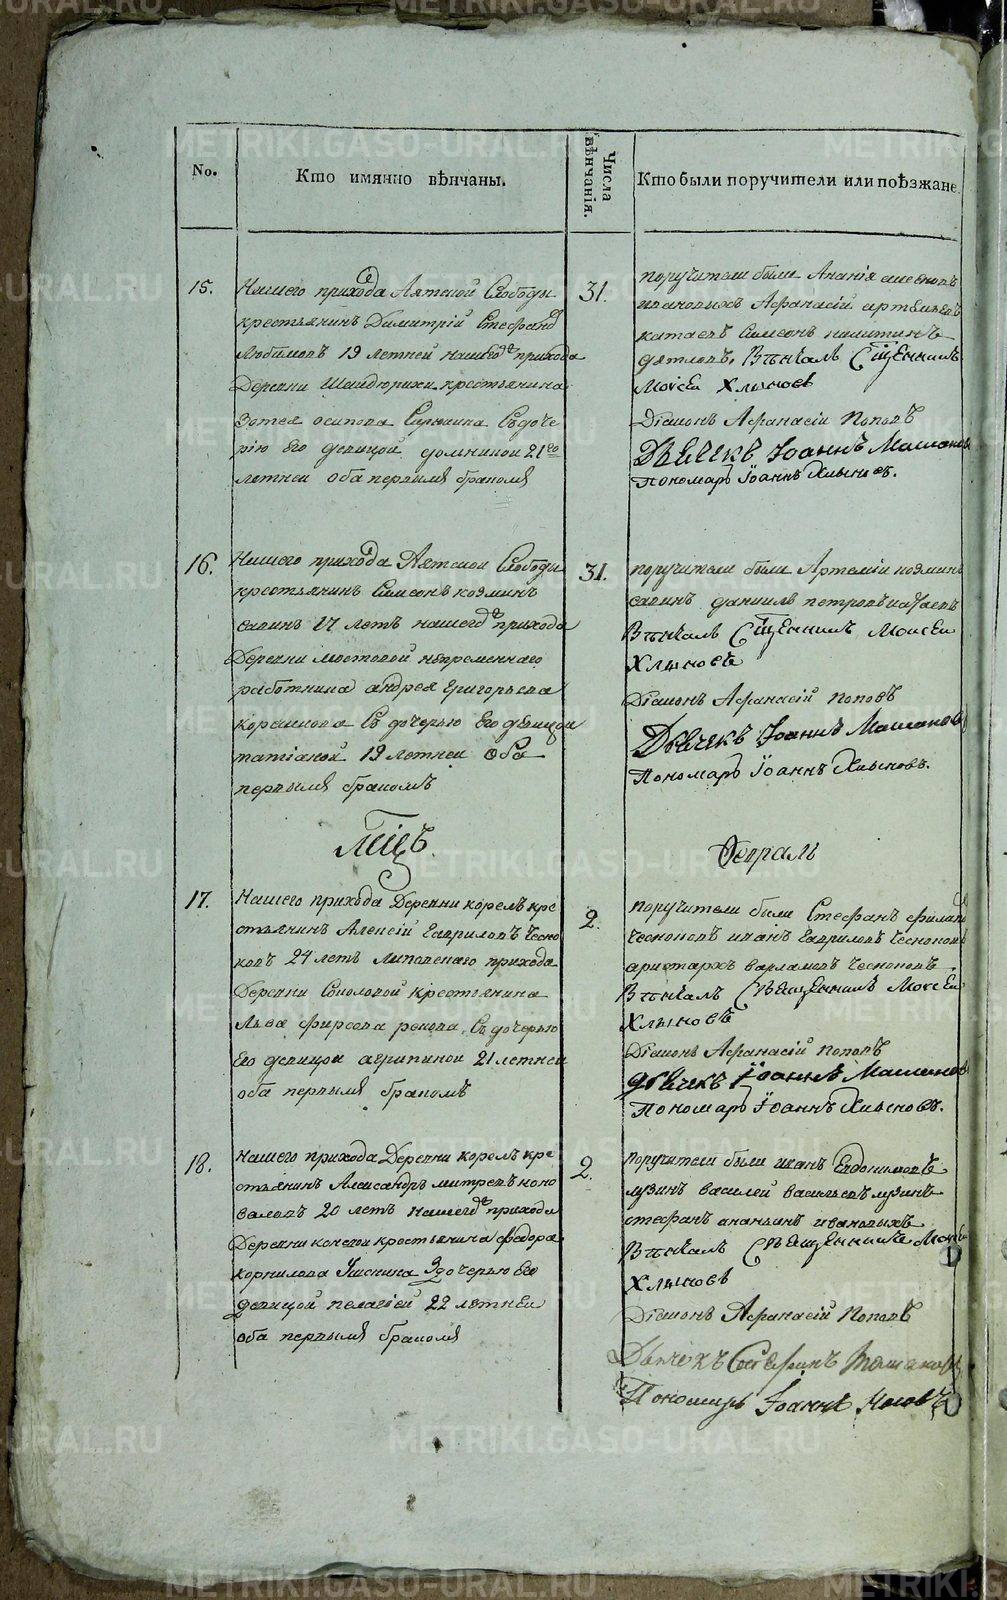 No.
Кто имянно вѣнчаны.
Числа вѣнчанія.
Кто были поручители или поѣзжане.
15.
Нашего прихода Аятской Слободы
крестьянинъ Димитрій Стефанд
Любимовъ 19 летней нашегѡ прихода
Деревни крестьянина
Зотея осипова Съ доче
рію Его девицой домникой 21го
летней оба первымъ бракомъ
31.
поручители были Ананія
ивановыхъ Афанасій артемьевъ
катаевъ Симеонъ никитинъ
дятловъ. Вѣнчалъ Сщенникъ
Моисей Хлыновъ
Діаконъ Афанасій Поповъ
Дьячекъ Іоаннъ
Пономарь Іоаннъ Хлыновъ.
16.
Нашего прихода Аятской Слободы
крестьянинъ Симеонъ козминъ
савинъ 17 летъ нашего прихода
Деревни мостовой непременнаго
работника андрея григорьева
Съ дочерью Его девицой
татіаной 19 летней Оба
первымъ бракомъ
31.
поручители были Артемій козминъ
савинъ даниилъ петровъ катаевъ
Вѣнчалъ Сщенникъ Моисей
Хлыновъ
Діаконъ Афанасій поповъ
Дьячекъ Іоаннъ
Пономарь Іоаннъ Хлыновъ.
Мсцъ
Февраль
17.
Нашего прихода Деревни корелъ кре
стьянинъ Алексій Гавриловъ Чесно
ковъ 24 летъ Липовскаго прихода
Деревни Соколовой крестьянина
Льва фирсова Съ дочерью
Его девицой агрипиной 21 летней
оба первымъ бракомъ
2.
поручители были Стефанъ
Чесноковъ иванъ Гавриловъ Чесноковъ
аристархъ варламовъ чесноковъ.
Вѣнчалъ Священникъ Моисей
Хлыновъ
Діаконъ Афанасій поповъ
дьячекъ Іоаннъ
Пономарь Іоаннъ Хлыновъ.
18.
Нашего прихода Деревни корелъ кре
стьянинъ Александръ митревъ коно
валовъ 20 летъ нашего прихода
Деревни крестьянина федора
корнилова Здочерью Его
девицой пелагіей 22 летней
оба первымъ бракомъ
2.
поручители были иванъ Евдокимовъ
лузинъ василей васильевъ лузинъ
стефанъ ананьинъ ивановыхъ
Вѣнчалъ Священникъ Моисей
Хлыновъ
Діаконъ Афанасій Поповъ
Дьячекъ Стефанъ
Пономарь Іоаннъ
METRIKI.GASO-URAL.RU